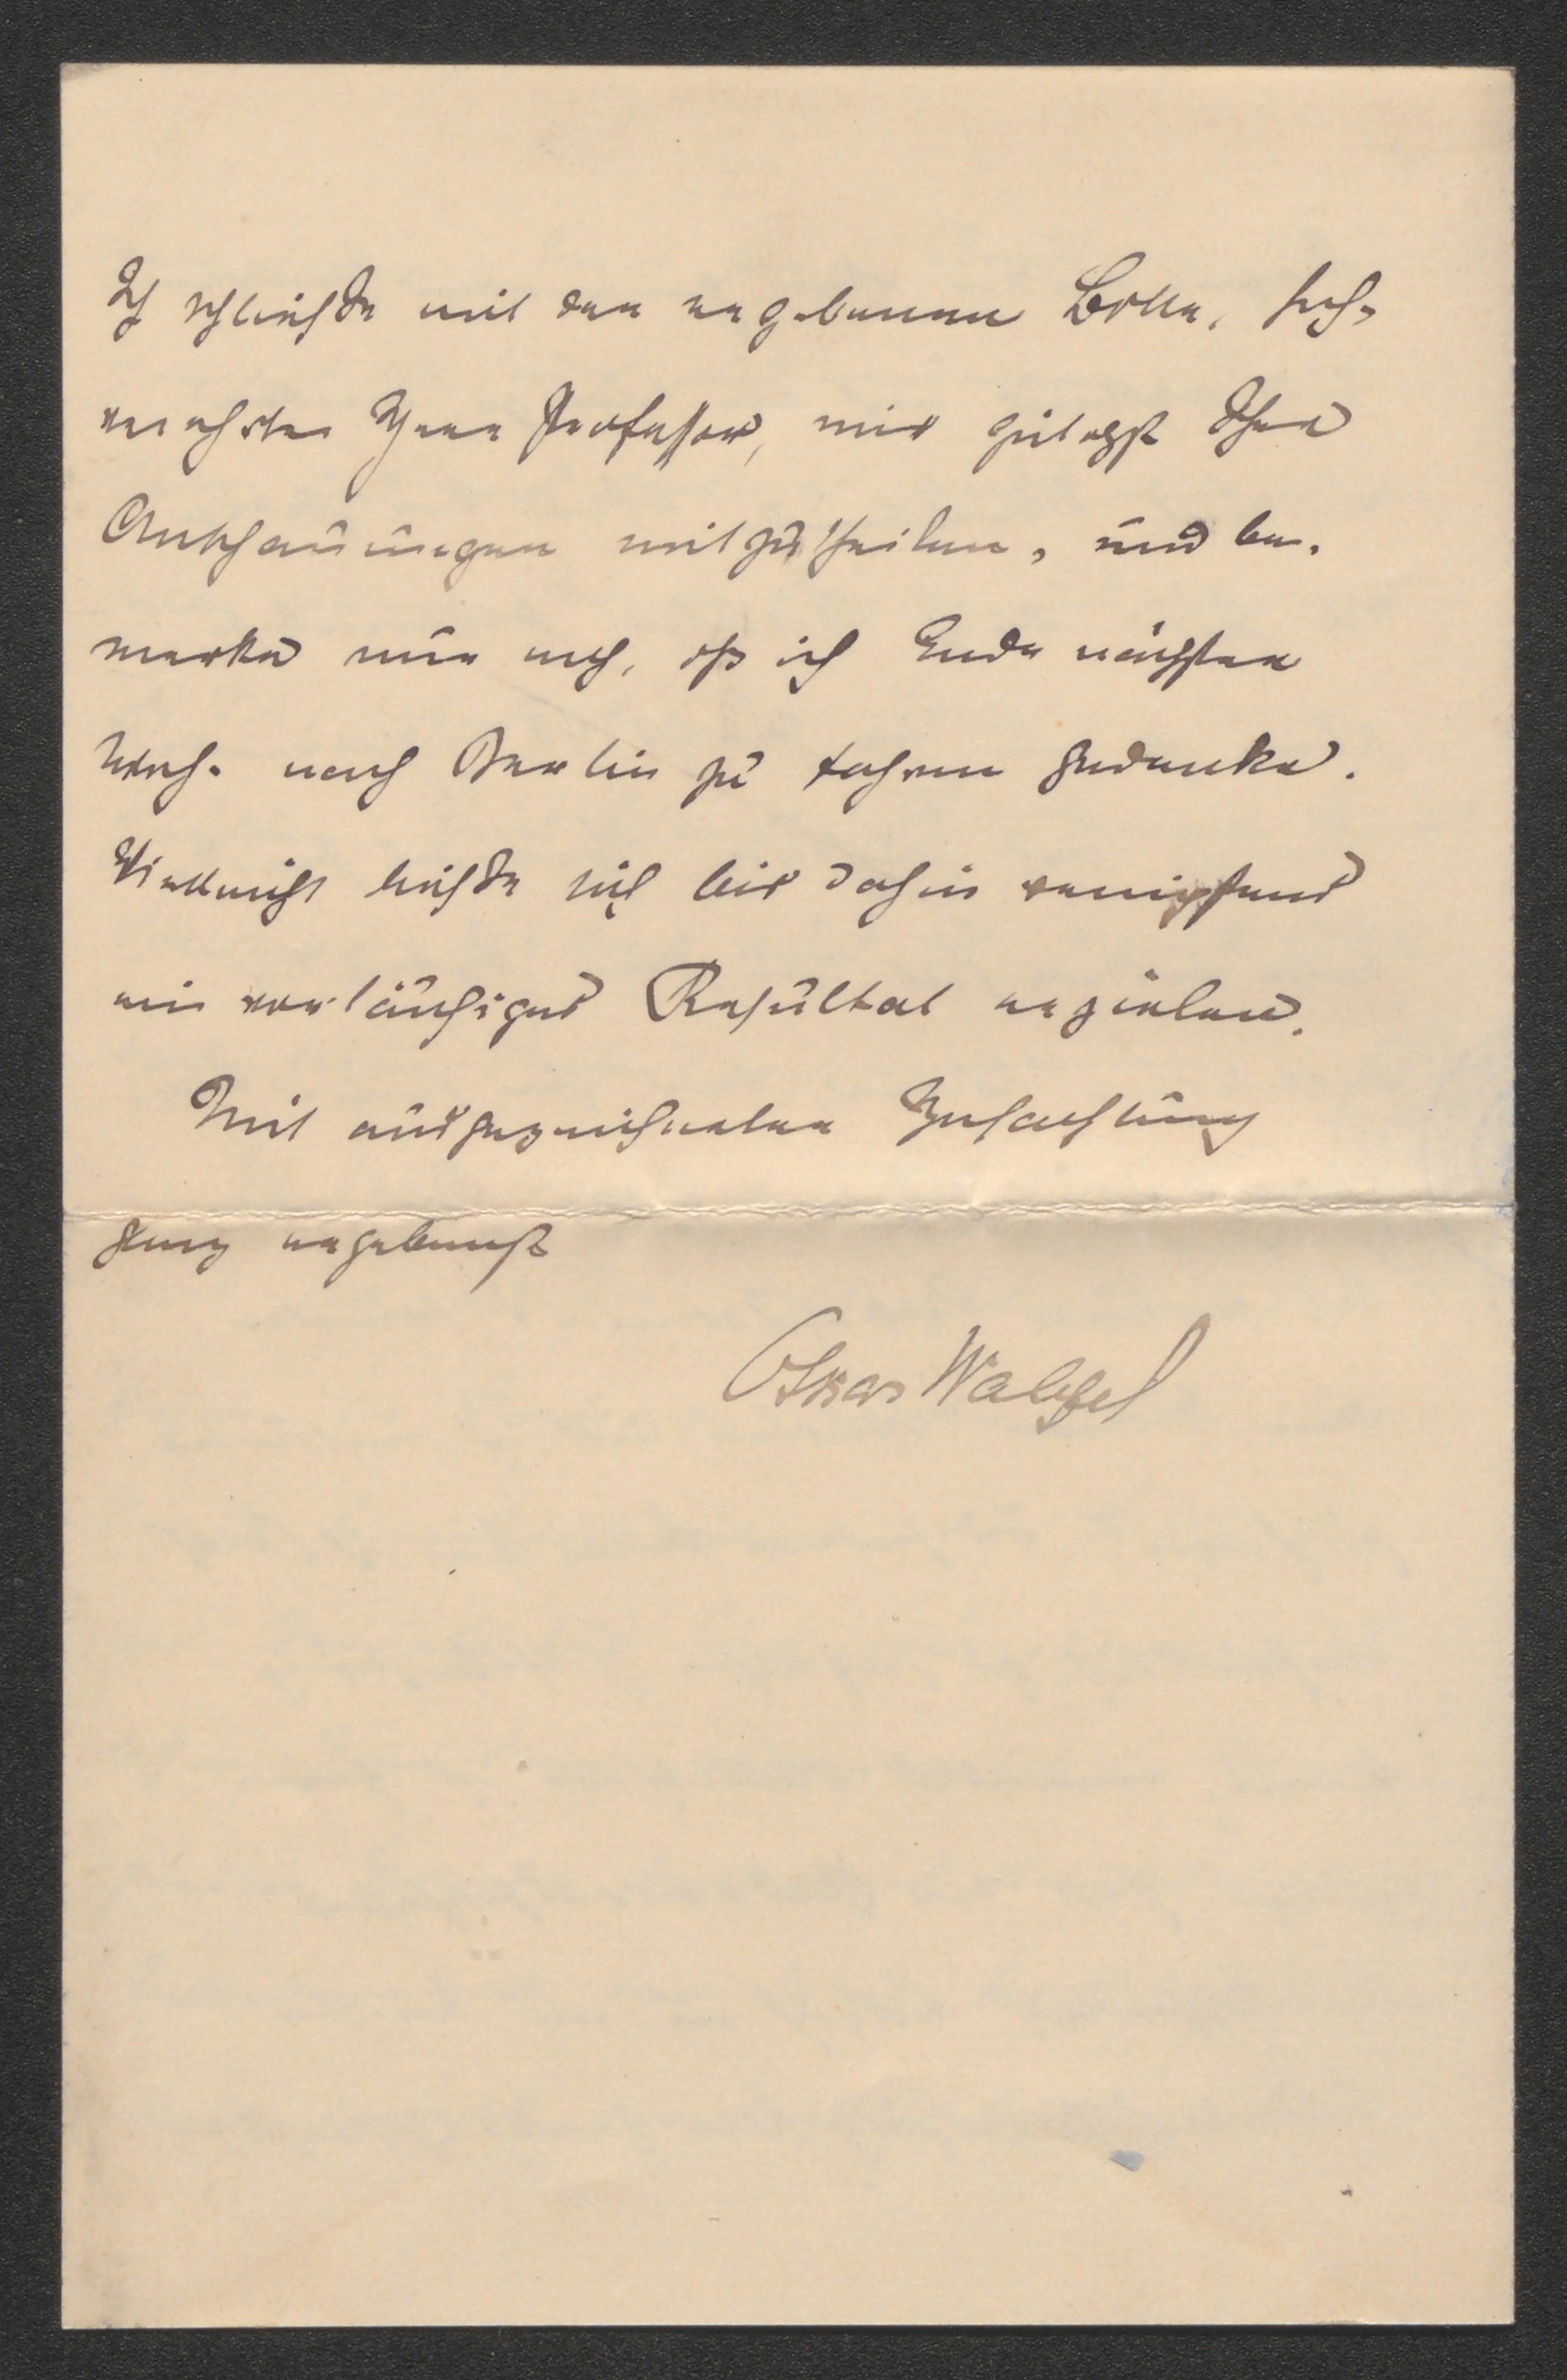 Ich schließe mit der ergebenen Bitte, hoch-
verehrter Herr Professor, mir gütigst Ihre
Anschauungen mitzutheilen, und be-
merke nur noch, dß ich Ende nächster
Woche nach Berlin zu fahren gedenke.
Vielleicht ließe sich bis dahin wenigstens
ein vorläufiges Resultat erzielen.
Mit ausgezeichneter Hochachtung
ganz ergebenst
Oskar Walzel